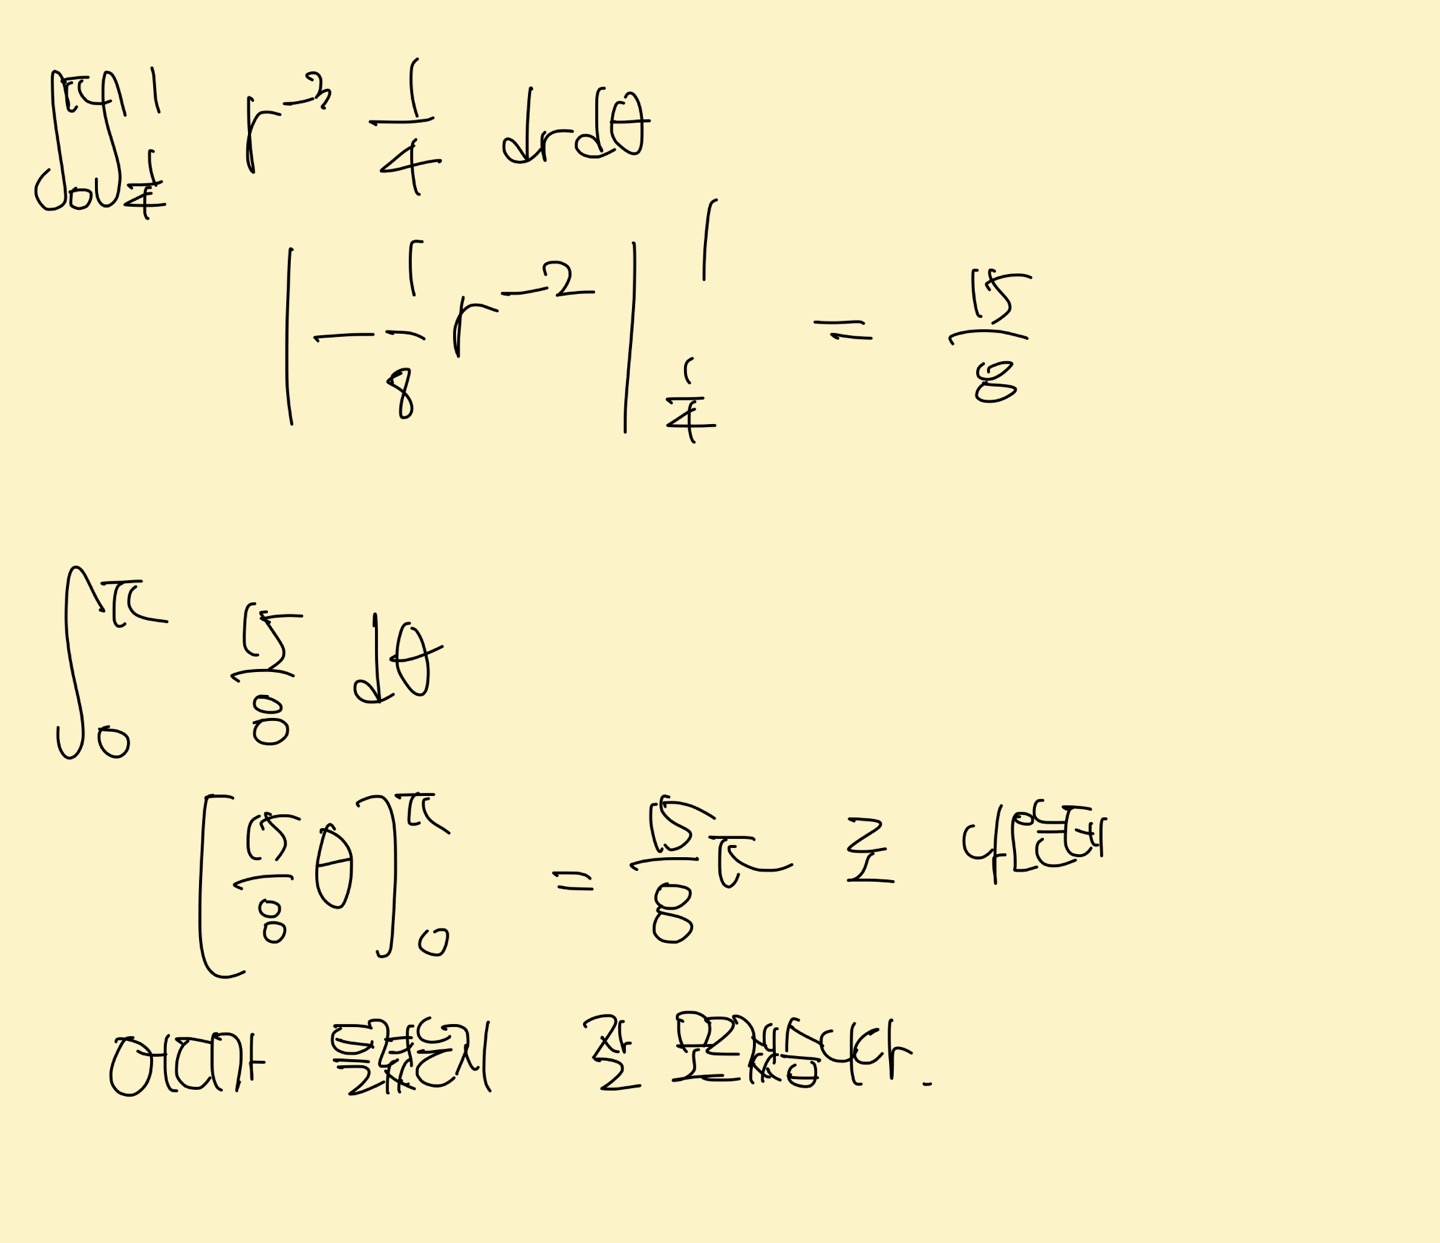 ∫₀^π ∫_{1/4}^1 r⁻³ 1/4 drdθ
|-1/8 r⁻²|_{1/4}^1 = 15/8
∫₀^π 15/8 dθ
[15/8 θ]₀^π = 15/8 π 로 나오는데
어디가 틀렸는지 잘 모르겠습니다.